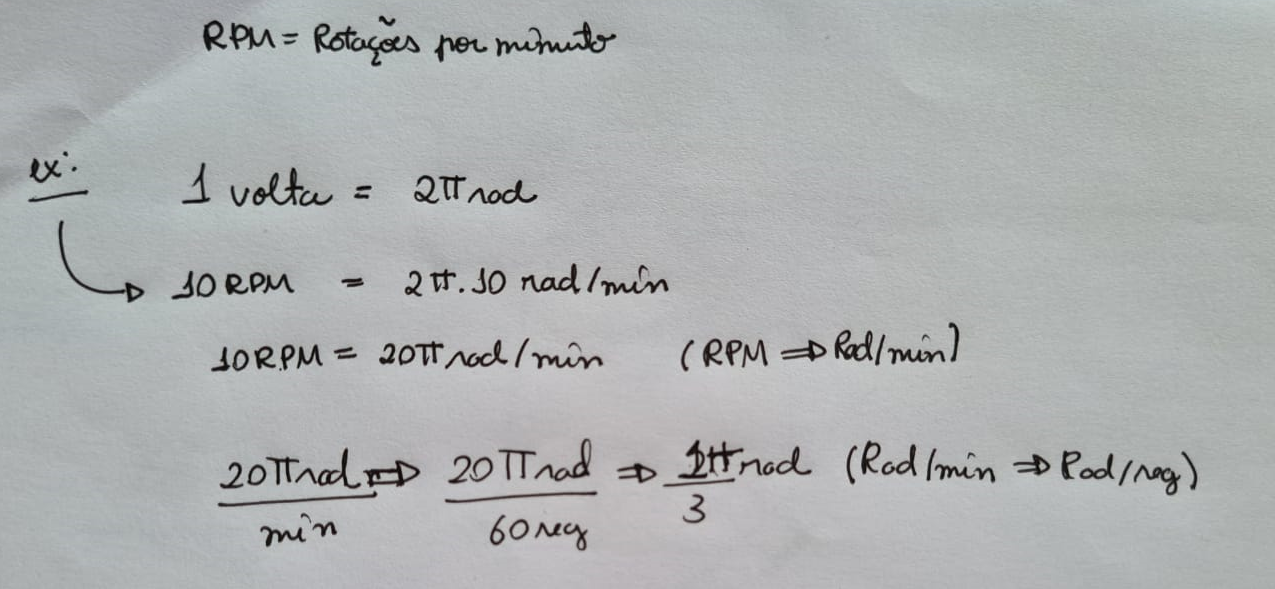 RPM = Rotações por minuto
ex:
1 volta = 2π rad
10 RPM = 2π.10 rad/min
10 RPM = 20π rad/min (RPM ⇒ Rad/min)
20π rad/min ⇒ 20π rad/60 seg ⇒ 1π rad/3 (Rad/min ⇒ Rad/seg)